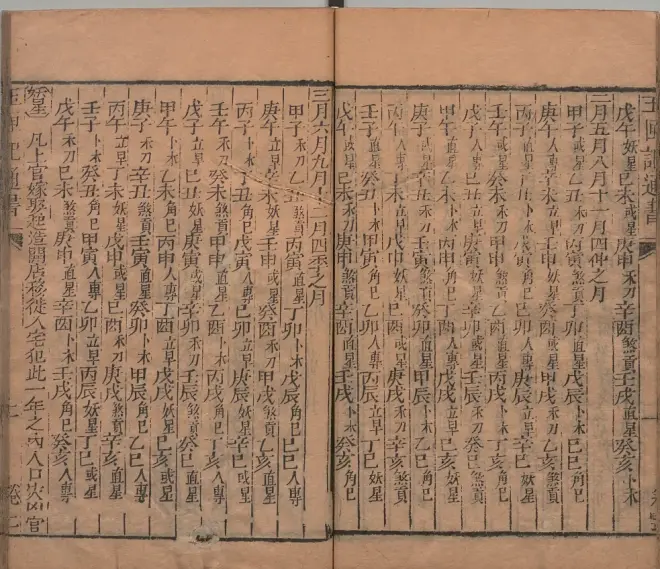 玉匣記通書
戊午妖星己未或星庚申禾刀辛酉煞貢壬戌直星癸亥卜木
二月五月八月十一月四仲之月
甲子或星乙丑禾刀丙寅煞貢丁卯直星戊辰卜木己巳角巳
庚午人專辛未立早壬申妖星癸酉或星甲戌禾刀乙亥煞貢
丙子直星丁丑卜木戊寅角巳己卯人專庚辰立早辛巳妖星
壬午或星癸未禾刀甲申煞貢乙酉直星丙戌卜木丁亥角巳
戊子人專己丑立早庚寅妖星辛卯或星壬辰禾刀癸巳煞貢
甲午直星乙未卜木丙申角巳丁酉人專戊戌立早己亥妖星
庚子或星辛丑禾刀壬寅煞貢癸卯直星甲辰卜木乙巳角巳
丙午人專丁未立早戊申妖星己酉或星庚戌禾刀辛亥煞貢
壬子直星癸丑卜木甲寅角巳乙卯人專丙辰立早丁巳妖星
戊午或星己未禾刀庚申煞貢辛酉直星壬戌卜木癸亥角巳
三月六月九月十二月四季之月
甲子禾刀乙丑煞貢丙寅直星丁卯卜木戊辰角巳己巳人專
庚午立早辛未妖星壬申或星癸酉禾刀甲戌煞貢乙亥直星
丙子卜木丁丑角巳戊寅人專己卯立早庚辰妖星辛巳或星
壬午禾刀癸未煞貢甲申直星乙酉卜木丙戌角巳丁亥人專
戊子立早己丑妖星庚寅或星辛卯禾刀壬辰煞貢癸巳直星
甲午卜木乙未角巳丙申人專丁酉立早戊戌妖星己亥或星
庚子禾刀辛丑煞貢壬寅直星癸卯卜木甲辰角巳乙巳人專
丙午立早丁未妖星戊申或星己酉禾刀庚戌煞貢辛亥直星
壬子卜木癸丑角巳甲寅人專乙卯立早丙辰妖星丁巳或星
戊午禾刀己未煞貢庚申直星辛酉卜木壬戌角巳癸亥人專
妖星 凡上官嫁娶起造開店移徙入宅犯此一年之內人口災凶官
玉匣記通書